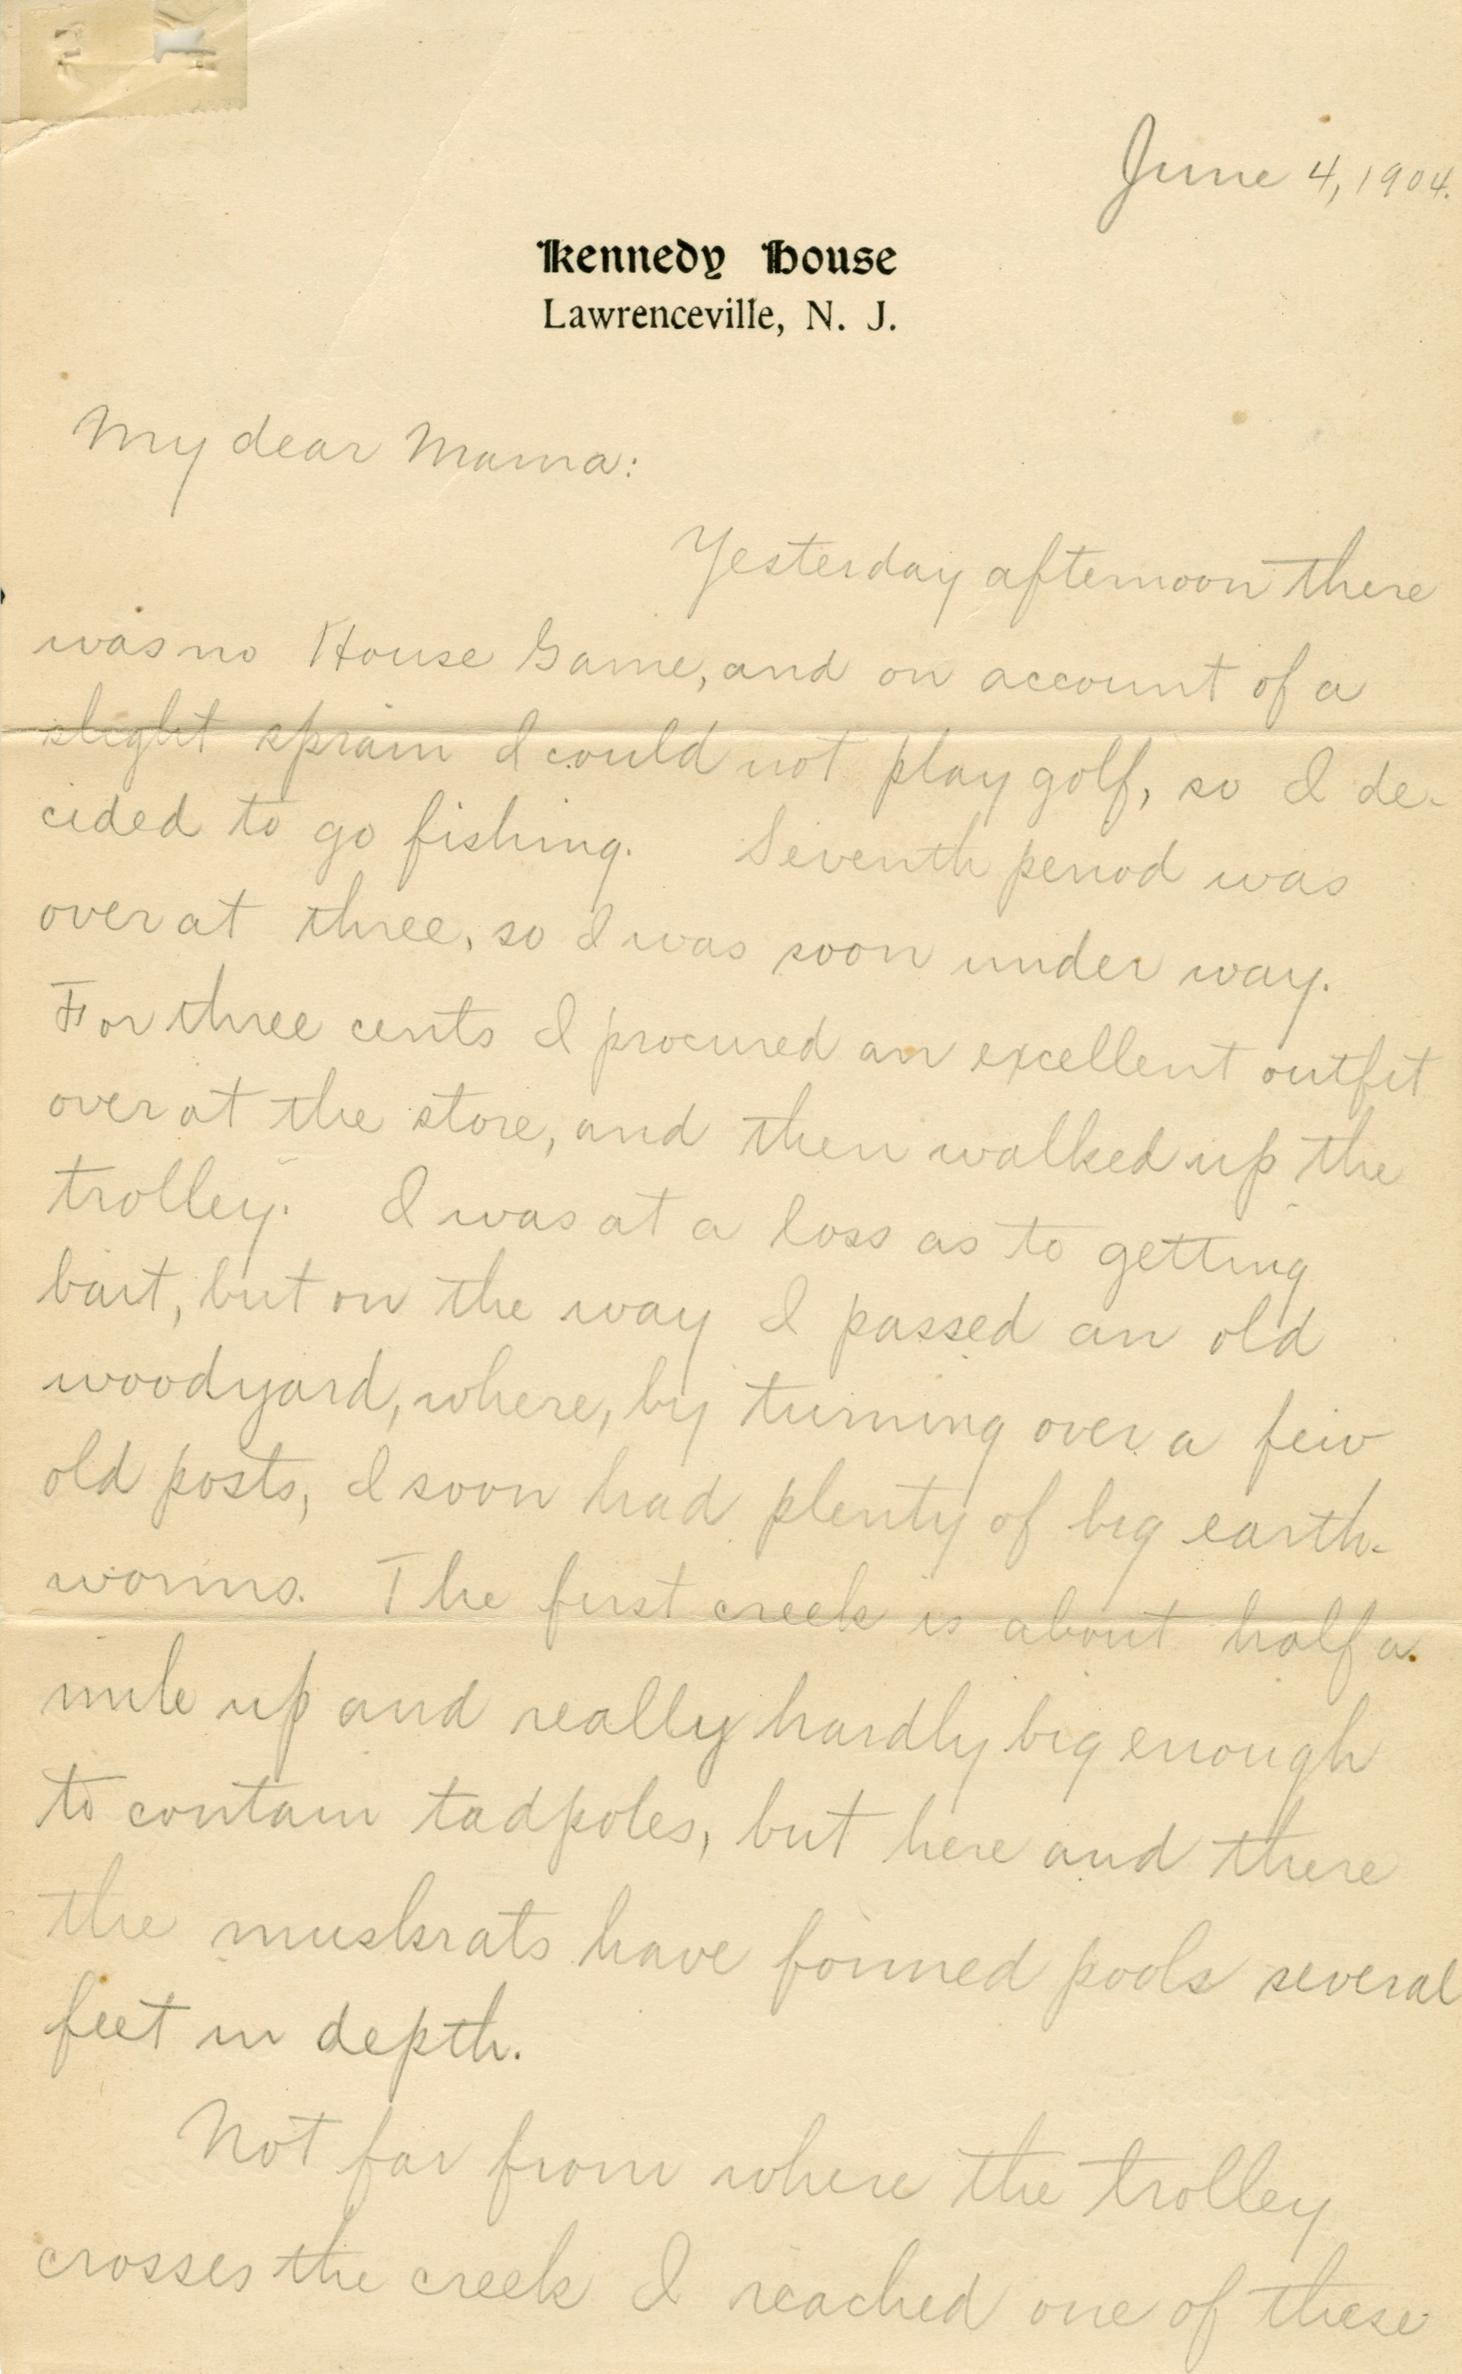 June 4, 1904.
Kennedy House
Lawrenceville, N. J.
My dear Mama:
Yesterday afternoon there
was no House Game, and on account of a
slight sprain I could not play golf, so I de-
cided to go fishing. Seventh period was
over at three, so I was soon under way.
For three cents I procured an excellent outfit
over at the store, and then walked up the
trolley. I was at a loss as to getting
bait, but on the way I passed an old
woodyard, where, by turning over a few
old posts, I soon had plenty of big earth-
worms. The first creek is about half a
mile up and really hardly big enough
to contain tadpoles, but here and there
the muskrats have formed pools several
feet in depth.
Not far from where the trolley
crosses the creek I reached one of these